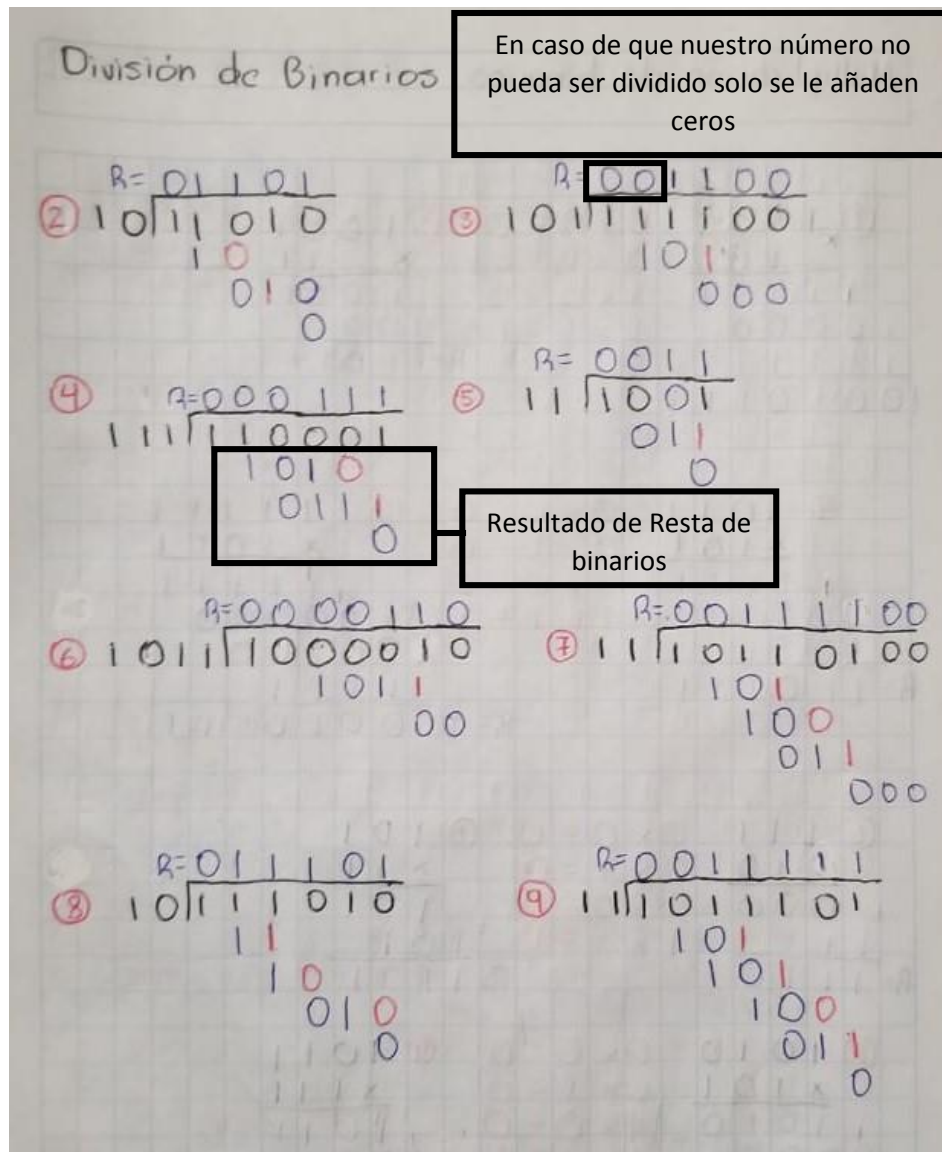 División de Binarios
En caso de que nuestro número no
pueda ser dividido solo se le añaden
ceros
R= 01101
② 10 11010
10
010
0
R= 001100
③ 101 111100
101
000
R= 000111
④ 111 110001
1010
0111
0
R= 0011
⑤ 11 1001
011
0
Resultado de Resta de
binarios
R= 0000110
⑥ 1011 1000010
1011
00
R= 00111100
⑦ 11 10110100
101
100
011
000
R= 011101
⑧ 10 111010
11
10
010
0
R= 0011111
⑨ 11 1011101
101
101
100
011
0